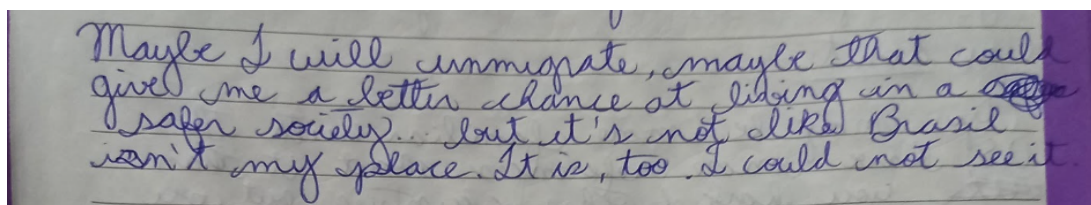 Maybe I will immigrate, maybe that could
give me a better chance at living in a
safer society... but it's not like Brasil
isn't my place. It is, too. I could not see it.